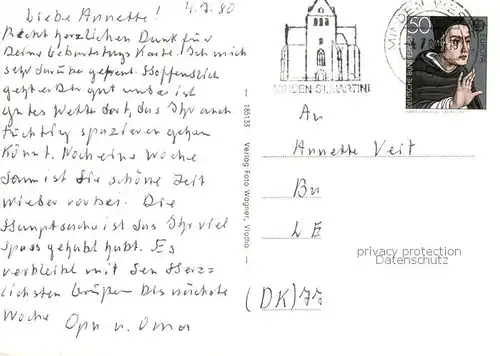 4.7.80
Liebe Annette!
Recht herzlichen Dank für
Deine Geburtstags Karte. Ich mich
sehr darüber gefreut. Hoffentlich
geht es Dir gut und es ist
gutes Wetter dort, das Ihr auch
tüchtig spazieren gehen
könnt. Noch eine Woche
dann ist die schöne Zeit
wieder vorbei. Die
Hauptsache ist das Ihr viel
Spass gehabt habt. Es
verbleibt mit den Herz=
lichsten Grüßen bis nächste
Woche Opa u. Oma
165133 Verlag Foto Wagner, Vlotho
MINDEN ST. MARTINI
MINDEN WESTF
50
DEUTSCHE BUNDESPOST
EUROPA
An
Annette Veit
privacy protection
Datenschutz